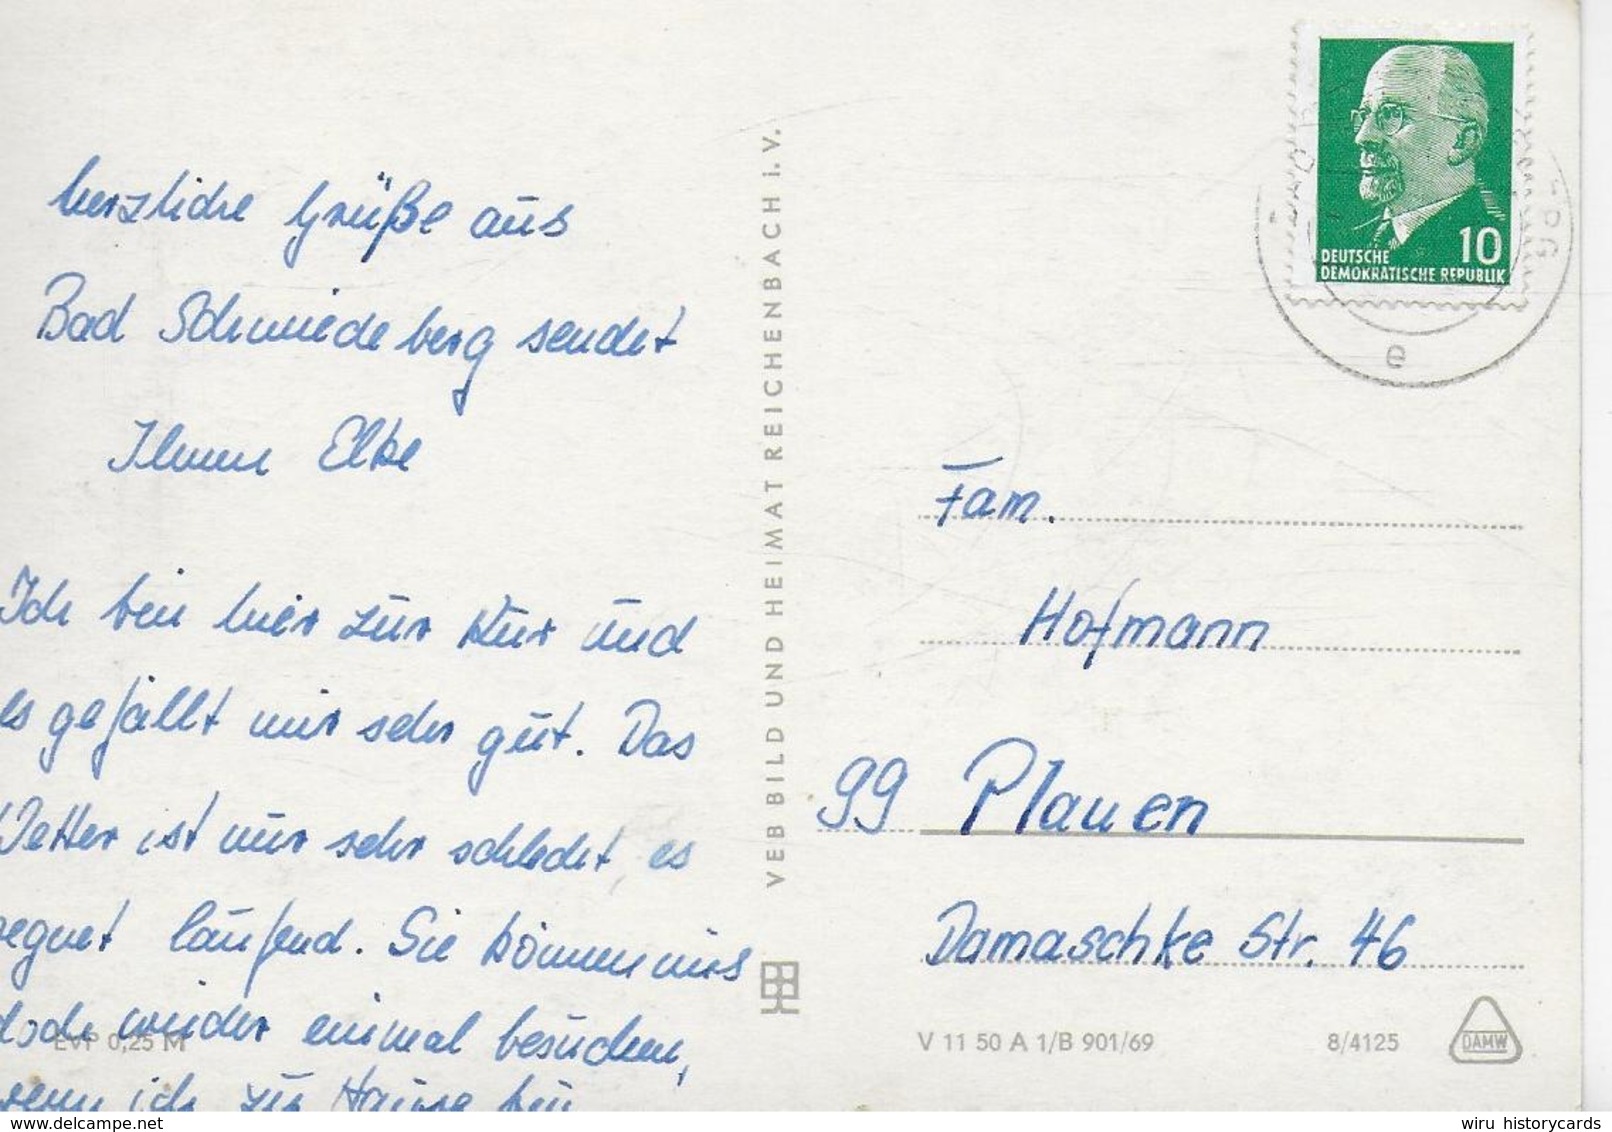 herzliche Grüße aus
Bad Schmiedeberg sendet
Ihnen Elke
Ich bin hier zur Kur und
es gefällt mir sehr gut. Das
Wetter ist nur sehr schlecht, es
regnet laufend. Sie können uns
doch wieder einmal besuchen,
wenn ich zu Hause bin
EVP 0,25 M
VEB BILD UND HEIMAT REICHENBACH I. V.
10
DEUTSCHE
DEMOKRATISCHE REPUBLIK
e
Fam.
Hofmann
99 Plauen
Damaschke Str. 46
V 11 50 A 1/B 901/69
8/4125
DAMW
wiru historycards
delcampe.net